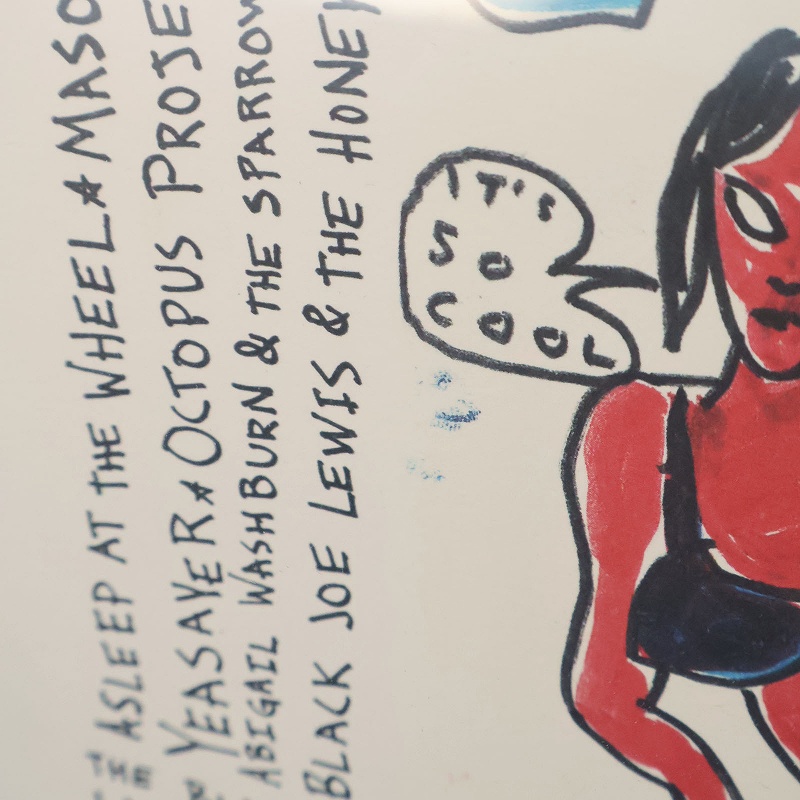 ASLEEP AT THE WHEEL ★ MASO
YEASAYER ★ OCTOPUS PROJE
ABIGAIL WASHBURN & THE SPARROW
BLACK JOE LEWIS & THE HONEY
IT'S
SO
COOL